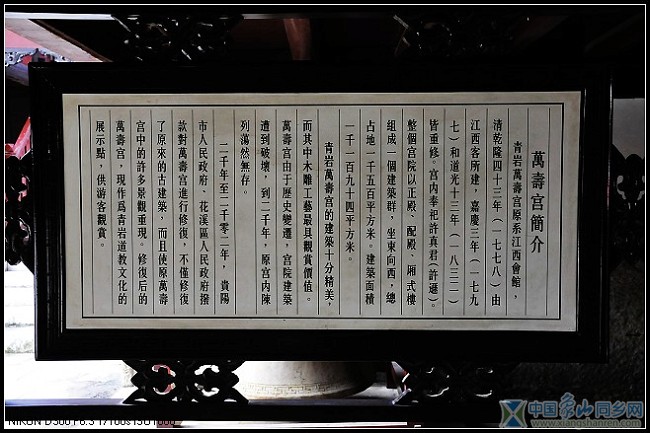 萬壽宮簡介
青岩萬壽宮原系江西會館，
清乾隆四十三年（一七七八）由
江西客所建，嘉慶三年（一七九
七）和道光十三年（一八三二）
皆重修。宮内奉祀許真君（許遜）。
整個宮院以正殿、配殿、厢式樓
組成一個建築群，坐東向西，總
占地一千五百平方米。建築面積
一千一百九十四平方米。
青岩萬壽宮的建築十分精美，
而其中木雕工藝最具觀賞價值。
萬壽宮由于歷史變遷，宮院建築
遭到破壞，到二千年，原宮内陳
列蕩然無存。
二千年至二千零二年，貴陽
市人民政府、花溪區人民政府撥
款對萬壽宮進行修復，不僅修復
了原來的古建築，而且使原萬壽
宮中的許多景觀重現。修復后的
萬壽宮，現作爲青岩道教文化的
展示點，供游客觀賞。
NIKON D300 F6.3 1/100s ISO1000
中国象山同乡网
www.xiangshanren.com